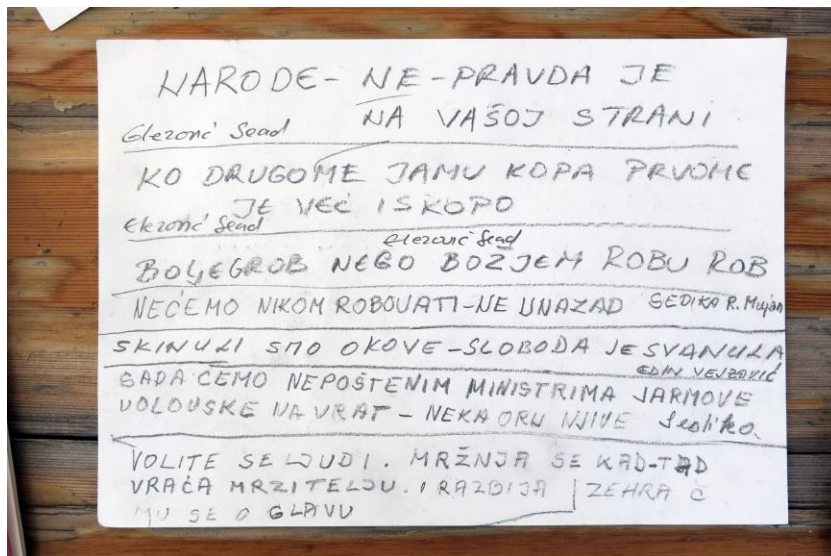 NARODE- NE -PRAVDA JE
NA VAŠOJ STRANI
Elezović Sead
KO DRUGOME JAMU KOPA PRVOME
JE VEĆ ISKOPO
Elezović Sead
elezović Sead
BOLJEGROB NEGO BOŽJEM ROBU ROB
NEĆEMO NIKOM ROBOVATI-NE UNAZAD SEDIKA R. Mujan
SKINULI SMO OKOVE-SLOBODA JE SVANULA
EDIN VEJZOVIĆ
SADA ĆEMO NEPOŠTENIM MINISTRIMA JARMOVE
VOLOVSKE NA VRAT - NEKA ORU NJIVE Sedika
VOLITE SE LJUDI. MRŽNJA SE KAD-TAD
VRAĆA MRZITELJU. I RAZBIJA ZEHRA Č
MU SE O GLAVU